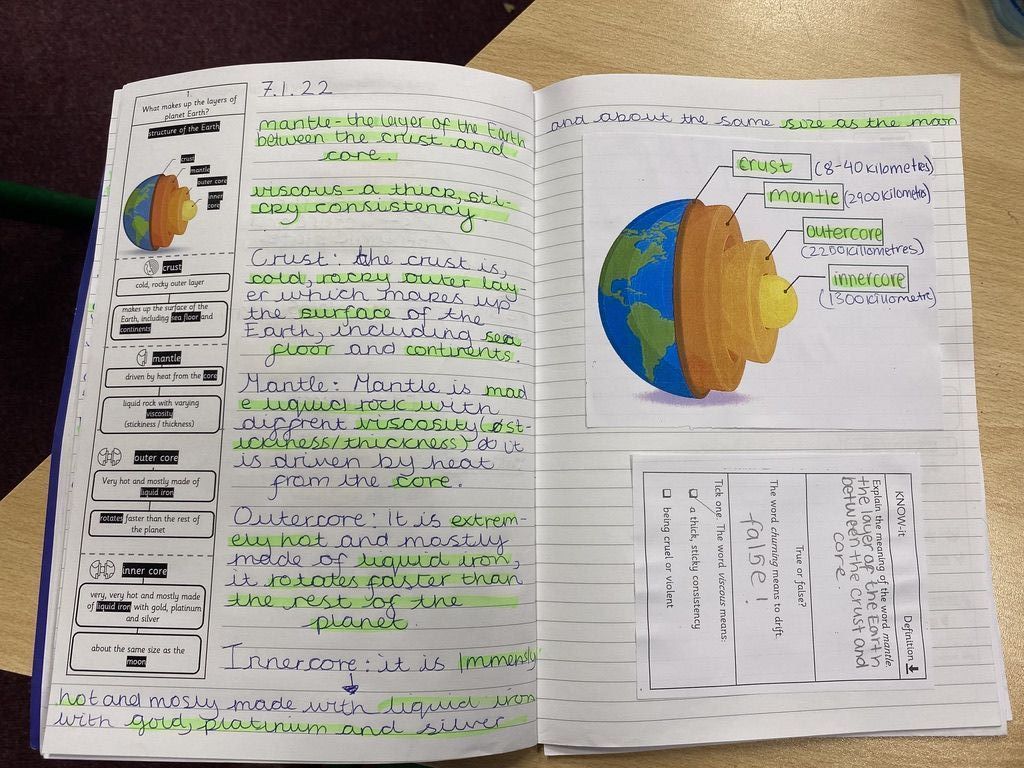 1.
What makes up the layers of
planet Earth?
structure of the Earth
crust
mantle
outer core
inner
core
crust
cold, rocky outer layer
makes up the surface of the
Earth, including sea floor and
continents
mantle
driven by heat from the core
liquid rock with varying
viscosity
(stickiness / thickness)
outer core
Very hot and mostly made of
liquid iron
rotates faster than the rest of
the planet
inner core
very, very hot and mostly made
of liquid iron with gold, platinum
and silver
about the same size as the
moon
7.1.22
mantle-the layer of the Earth
between the crust and
core.
viscous-a thick, sti-
cky consistency
Crust: the crust is,
cold, rocky outer lay
er which makes up
the surface of the
Earth, including sea
floor and continents.
Mantle: Mantle is mad
e liquid rock with
diffrent viscosity(st-
ickiness/thickness) it
is driven by heat
from the core.
Outercore: It is extrem-
ely hot and mostly
made of liquid iron,
it rotates faster than
the rest of the
planet.
Innercore: it is Immensly
hot and mosly made with liquid iron
with gold, platinum and silver
and about the same size as the moon
crust (8-40 kilometres)
mantle (2900 kilometres)
outercore
(2200 kilometres)
innercore
(1300 killometre)
KNOW-it
Definition
Explain the meaning of the word mantle.
the layer of the Earth
between the crust and
core.
True or false?
The word churning means to drift.
false!
Tick one. The word viscous means:
a thick, sticky consistency
being cruel or violent